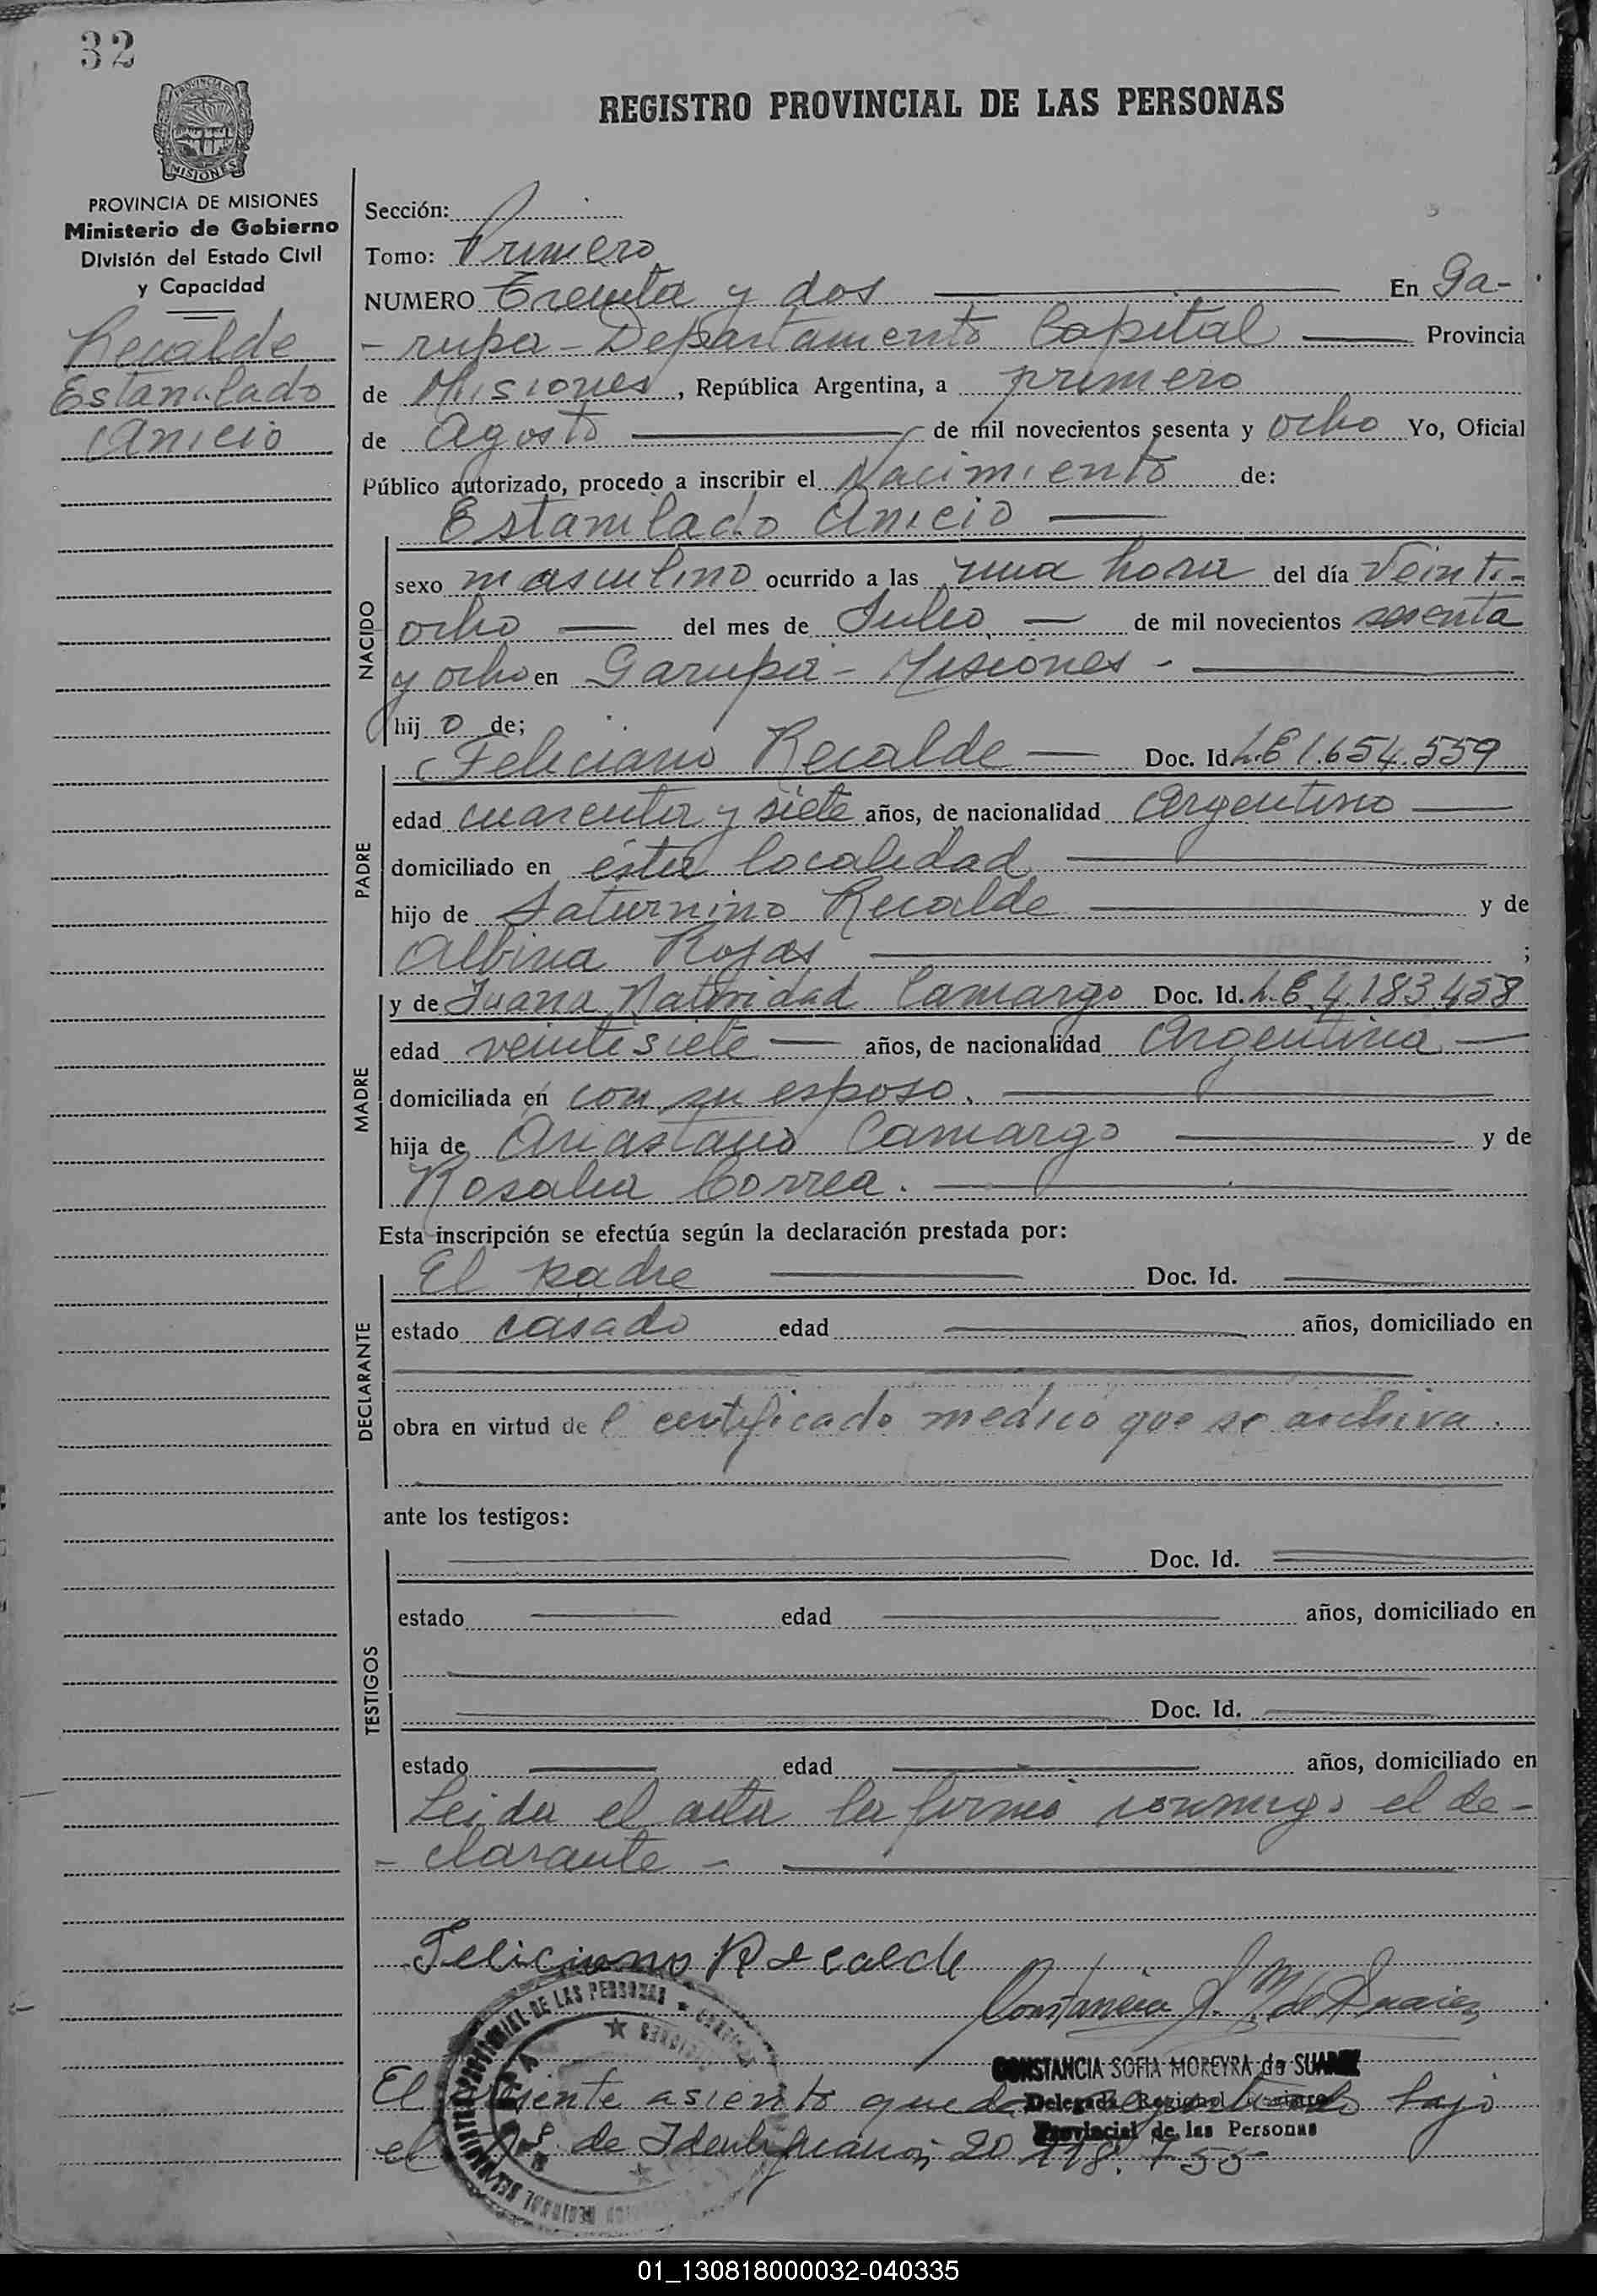 32
REGISTRO PROVINCIAL DE LAS PERSONAS
PROVINCIA DE MISIONES
Ministerio de Gobierno
División del Estado Civil
y Capacidad
Recalde
Estanilado
Anicio
Sección:
Tomo: Primero
NUMERO Treinta y dos En Ga-
- rupa - Departamento Capital Provincia
de Misiones, República Argentina, a primero
de Agosto de mil novecientos sesenta y ocho Yo, Oficial
Público autorizado, procedo a inscribir el Nacimiento de:
Estanilado Anicio
NACIDO
sexo masculino ocurrido a las una hora del día Veinti-
ocho del mes de Julio de mil novecientos sesenta
y ocho en Garupa - Misiones -
hij o de;
PADRE
Feliciano Recalde Doc. Id L.E 1.654.559
edad cuarenta y siete años, de nacionalidad Argentino
domiciliado en ésta localidad
hijo de Saturnino Recalde y de
Albina Rojas ;
MADRE
y de Juana Natividad Camargo Doc. Id. L.E 4.183.458
edad veintisiete años, de nacionalidad Argentina
domiciliada en con su esposo.
hija de Camargo y de
Rosalia Correa.
Esta inscripción se efectúa según la declaración prestada por:
DECLARANTE
El padre Doc. Id.
estado casado edad años, domiciliado en
obra en virtud de l certificado medico que se archiva.
ante los testigos:
TESTIGOS
Doc. Id.
estado edad años, domiciliado en
Doc. Id.
estado edad años, domiciliado en
Leida el acta la firma conmigo el de-
- clarante -
Feliciano Recalde
Constancia S. M de Suarez
CONSTANCIA SOFIA MOREYRA de SUAREZ
Delegada Regional Registro
Provincial de las Personas
El asiento queda bajo
el de Identificación 20
01_130818000032-040335